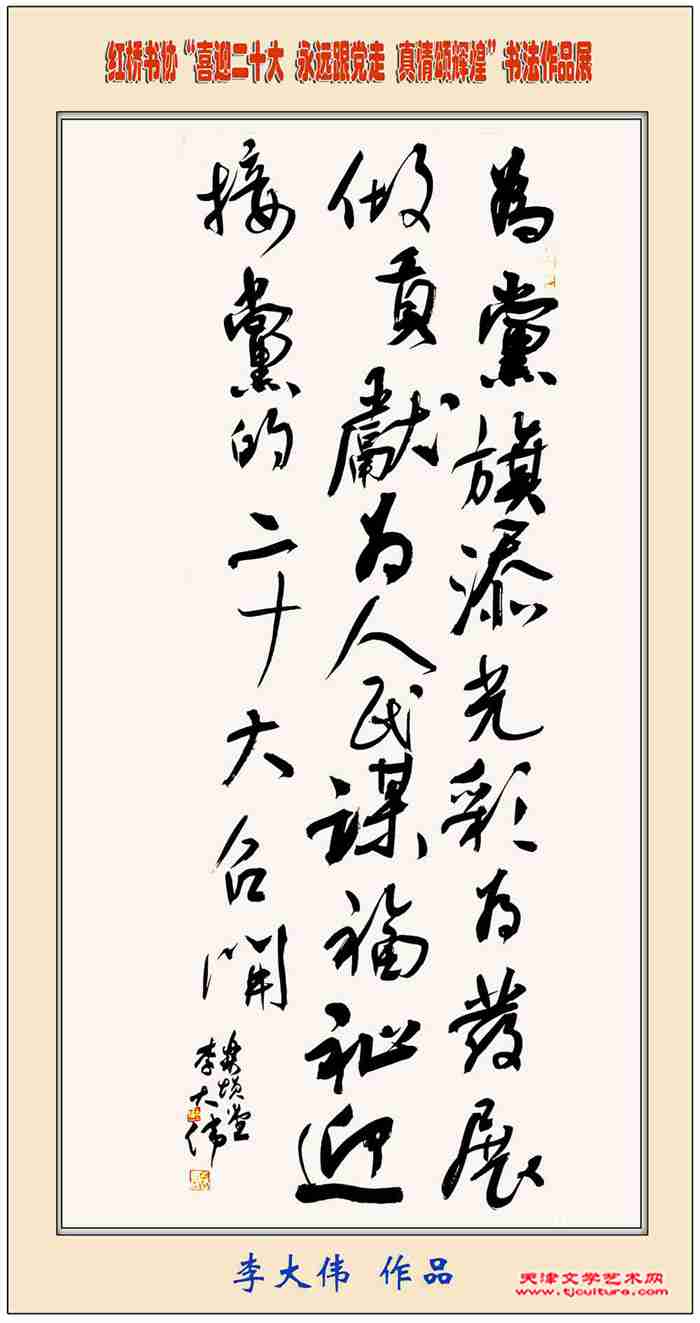 红桥书协“喜迎二十大 永远跟党走 真情颂辉煌”书法作品展
为黨旗添光彩为发展
做貢獻为人民謀福祉迎
接黨的二十大召開
李大伟
李大伟 作品
天津文学艺术网
www.tjculture.com